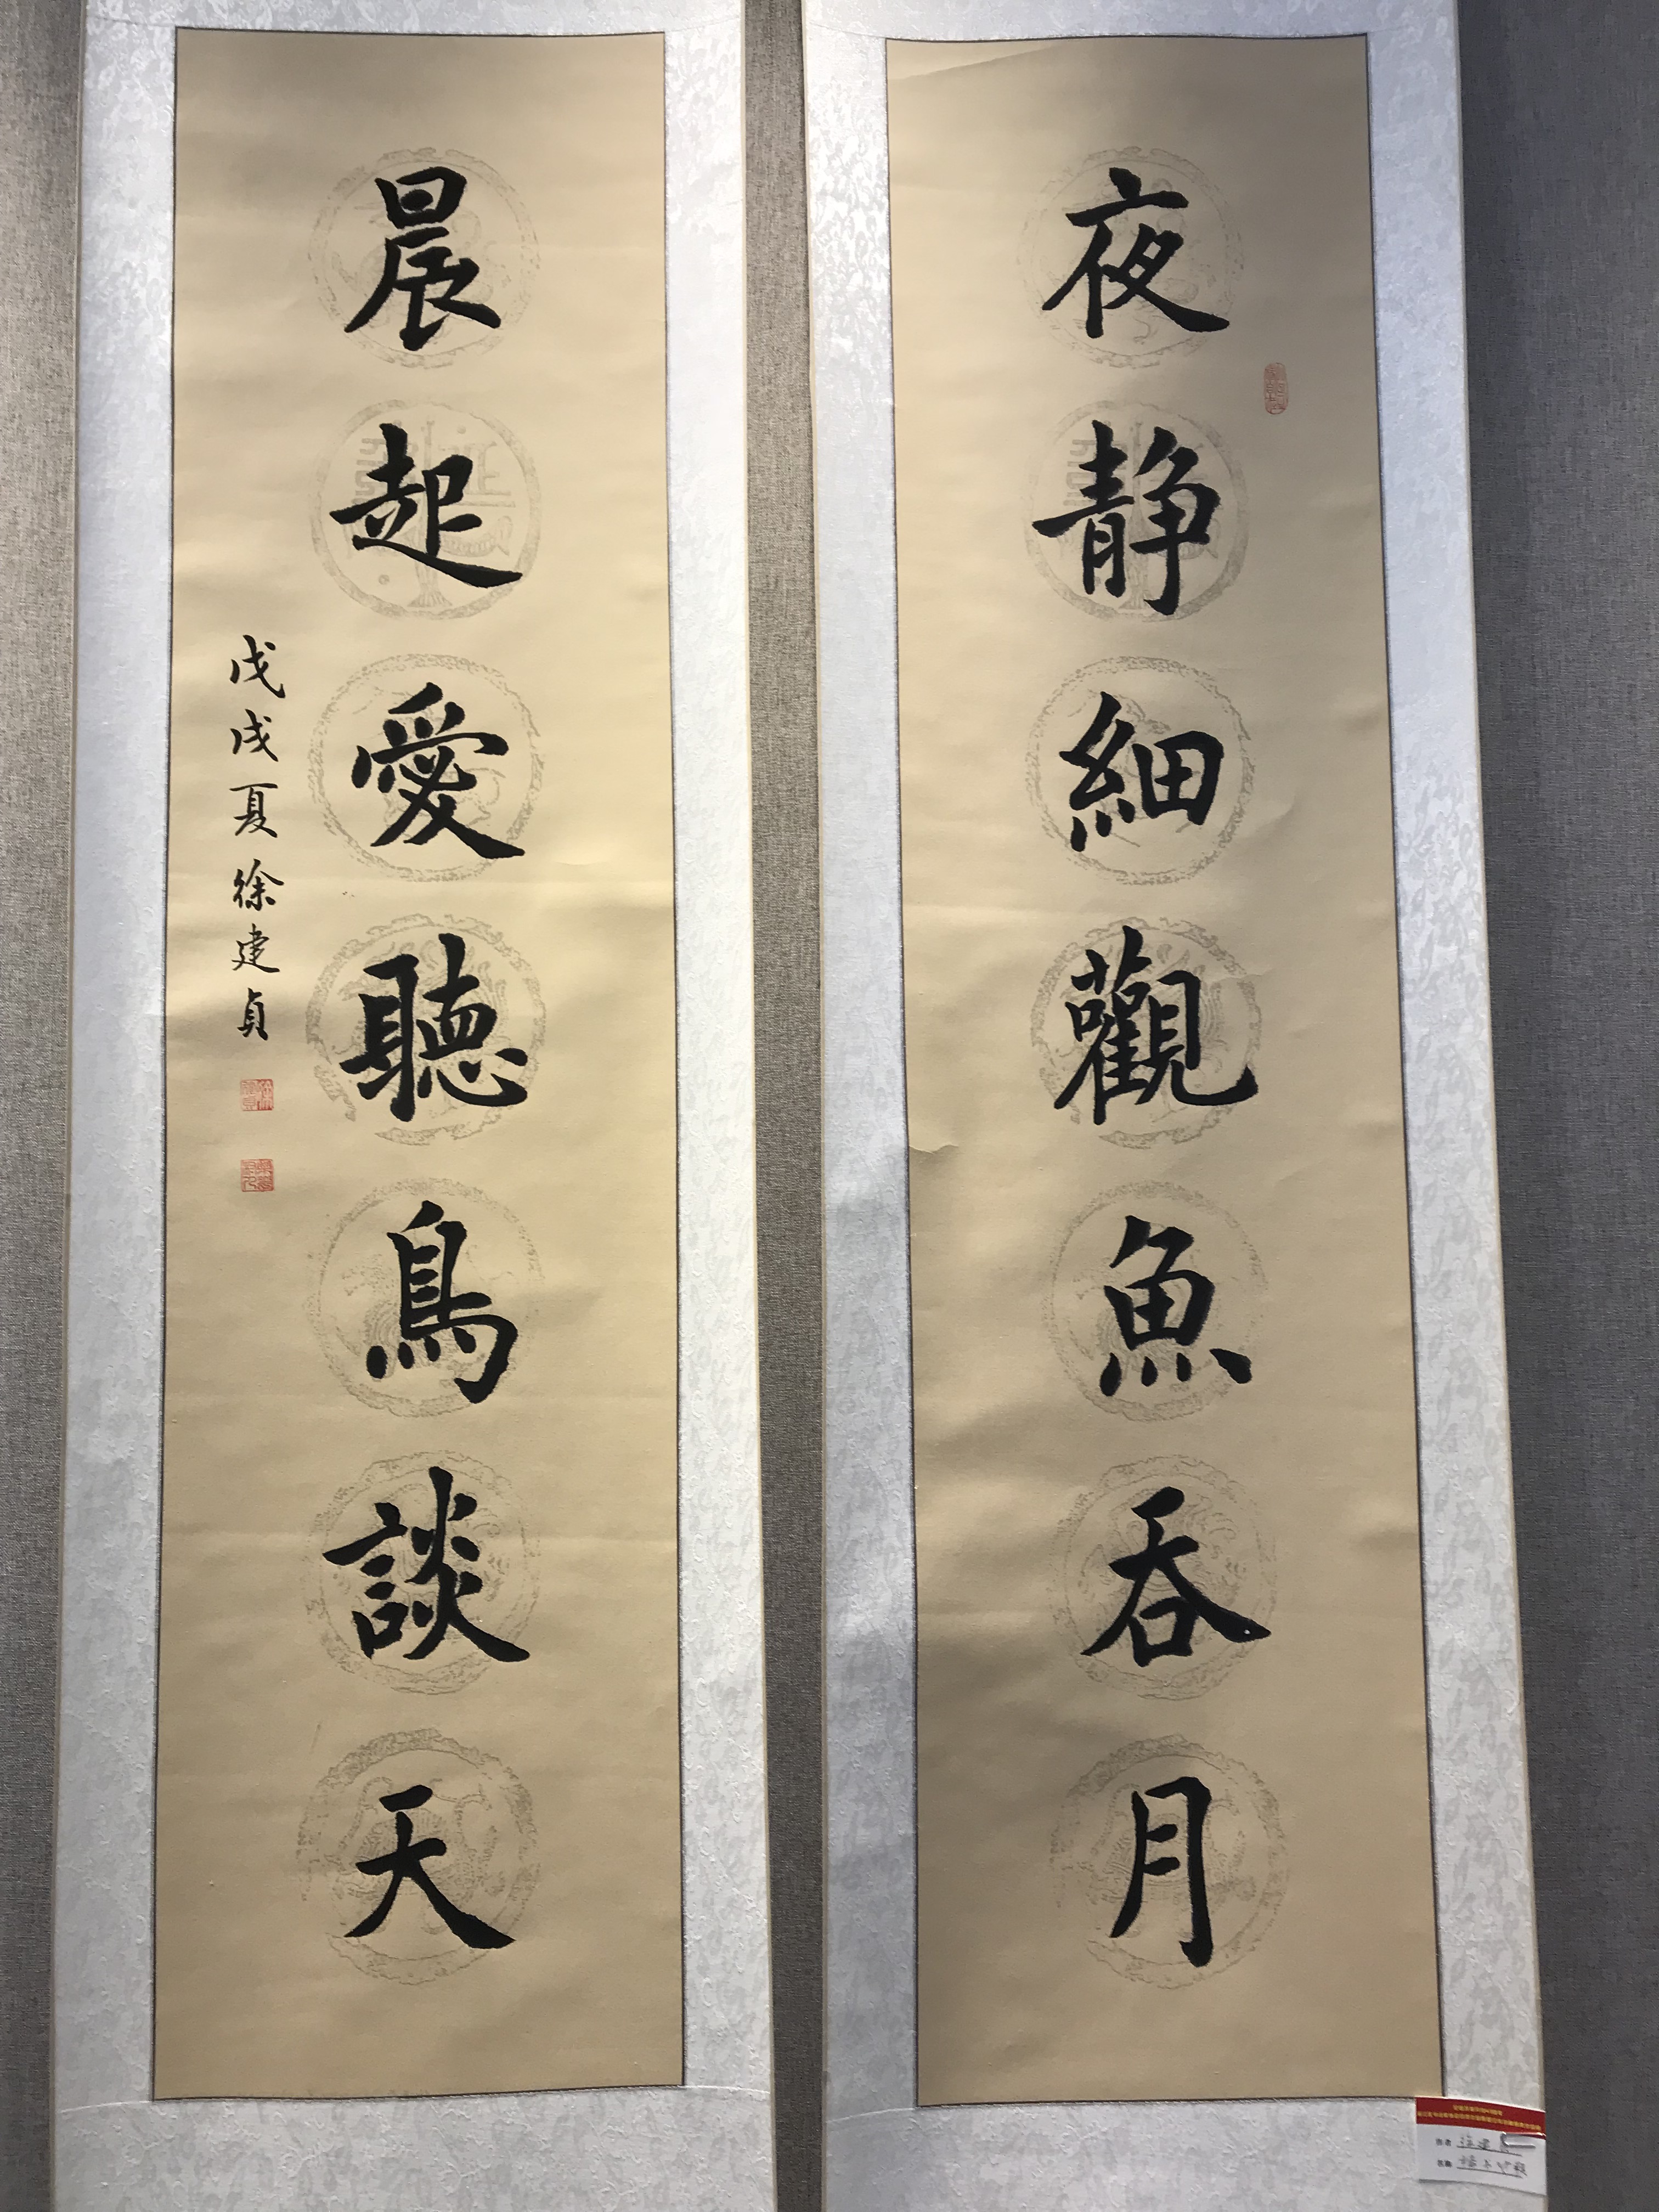 夜靜細觀魚吞月
晨起愛聽鳥談天
戊戌夏徐建貞